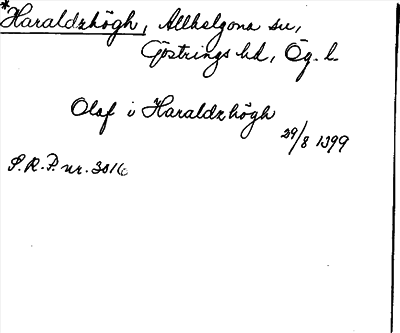 *Haraldzhögh, Allhelgona sn,
Göstrings hd, Ög. l.
Olaf i Haraldzhögh
29/8 1399
S.R.P. nr. 3016